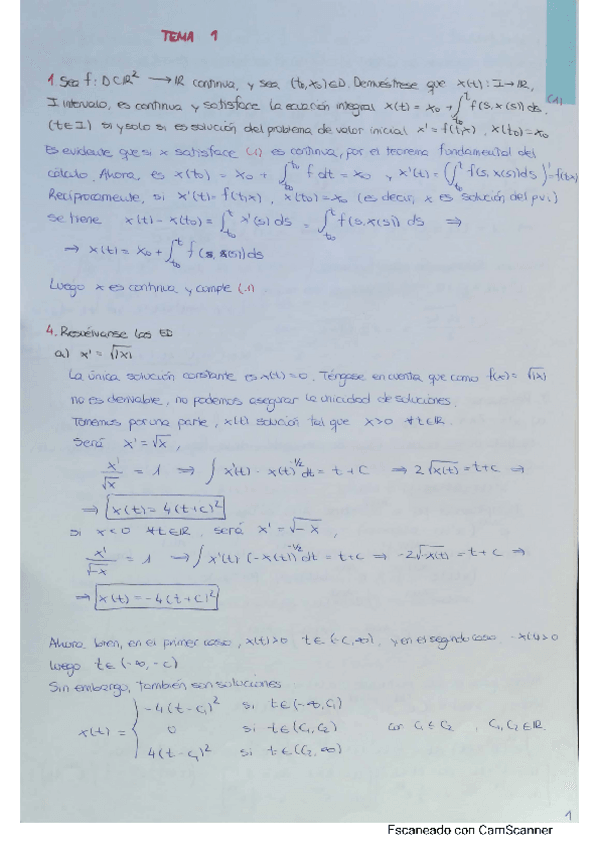 TEMA 1
1. Sea f: D⊂ℝ² → ℝ continua, y sea (t₀,x₀)∈D. Demuéstrese que x(t): I→ℝ,
I intervalo, es continua y satisface la ecuación integral x(t) = x₀ + ∫_{t₀}^{t} f(s,x(s)) ds. (1)
(t∈I) si y solo si es solución del problema de valor inicial x' = f(t,x), x(t₀)=x₀
Es evidente que si x satisface (1) es continua, por el teorema fundamental del
cálculo. Ahora, es x(t₀) = x₀ + ∫_{t₀}^{t₀} f dt = x₀ y x'(t) = (∫_{t₀}^{t} f(s,x(s))ds)' = f(t,x)
Recíprocamente, si x'(t) = f(t,x), x(t₀)=x₀ (es decir, x es solución del pvi)
se tiene x(t) - x(t₀) = ∫_{t₀}^{t} x'(s) ds = ∫_{t₀}^{t} f(s,x(s)) ds ⇒
→ x(t) = x₀ + ∫_{t₀}^{t} f(s,x(s)) ds
Luego x es continua y cumple (1)
4. Resuélvanse las ED
a) x' = √|x|
La única solución constante es x(t)=0. Téngase en cuenta que como f(x) = √|x|
no es derivable, no podemos asegurar la unicidad de soluciones.
Tomemos por una parte, x(t) solución tal que x>0 ∀t∈ℝ.
Será x' = √x,
x'/√x = 1 ⇒ ∫ x'(t) - x(t)^{-1/2} dt = t + C ⇒ 2√x(t) = t+C ⇒
⇒ x(t) = 4(t+C)²
si x<0 ∀t∈ℝ, será x' = √-x,
x'/√-x = 1 → ∫ x'(t) · (-x(t))^{-1/2} dt = t+C ⇒ -2√-x(t) = t + C ⇒
⇒ x(t) = -4(t+C)²
Ahora bien, en el primer caso, x(t)>0 t∈(-C,∞), y en el segundo caso -x(t)>0
luego t∈(-∞,-C)
Sin embargo, también son soluciones
x(t) = { -4(t-C₁)² si t∈(-∞,C₁)
0 si t∈(C₁,C₂) con C₁≤C₂, C₁,C₂∈ℝ.
4(t-C₁)² si t∈(C₂,∞)
1
Escaneado con CamScanner